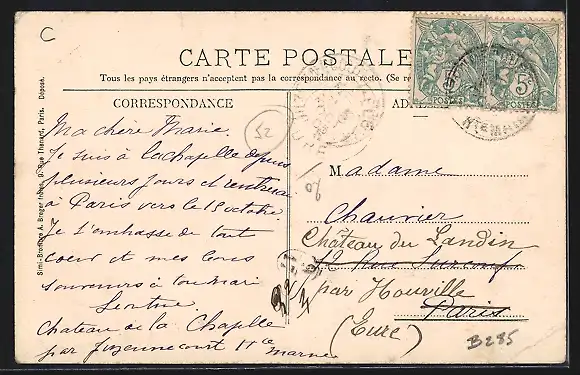 C
CARTE POSTALE
Tous les pays étrangers n'acceptent pas la correspondance au recto. (Se re
CORRESPONDANCE
AD
Simi-Bromure A. Breger frères, 9, Rue Thénard, Paris. Déposé.
52
Ma chère Marie.
Je suis à Lachapelle depuis
plusieurs jours et rentrerai
à Paris vers le 15 octobre
Je t'embrasse de tout
cœur et mes bons
souvenirs à ton mari
Chateau de la Chapelle
par Juzennecourt Hte
Marne
Madame
Chauvier
Château du Landin
12 Rue Surcouf
par Houville
Paris
(Eure)
B285
5c
POSTES
5c
POSTES